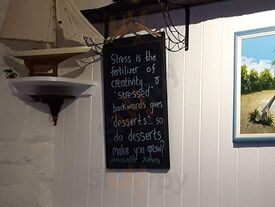 Stress is the
fertilizer of
creativity &
"stressed"
backwards gives
"desserts".. so
do desserts
make you grow?